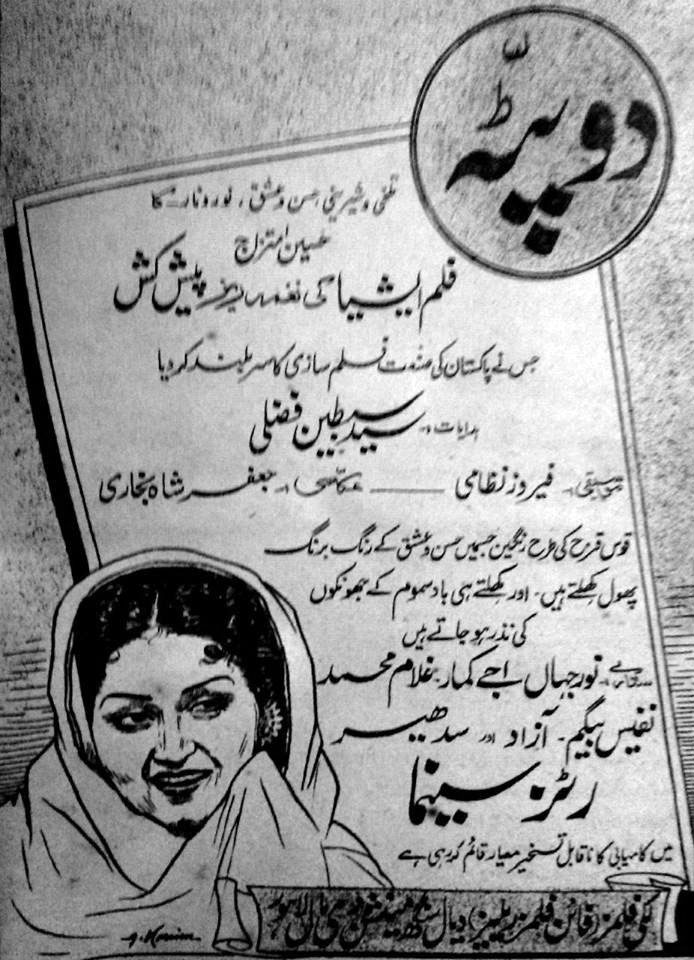 دوپٹہ
تلخی و شیرینی حسن و عشق، نور و نار کا
حسین امتزاج
فلم ایشیا کی نغمہ ریز پیش کش
جس نے پاکستان کی صنعت فلم سازی کا سر بلند کر دیا
ہدایات:- سید سبطین فضلی
موسیقی:- فیروز نظامی ــــ عکاسی:- جعفر شاہ بخاری
قوس قزح کی طرح رنگین جسمیں حسن و عشق کے رنگ برنگ
پھول کھلتے ہیں۔ اور کھلتے ہی بادسموم کے جھونکوں
کی نذر ہو جاتے ہیں
ستارے:- نور جہاں اجے کمار۔ غلام محمد
نفیس بیگم۔ آزاد اور سدھیر
رٹز سینما
میں کامیابی کا ناقابل تسخیر معیار قائم کر رہی ہے
لکی فلمز فائن فلمز ریلیز دیال سنگھ مینشن دی مال لاہور